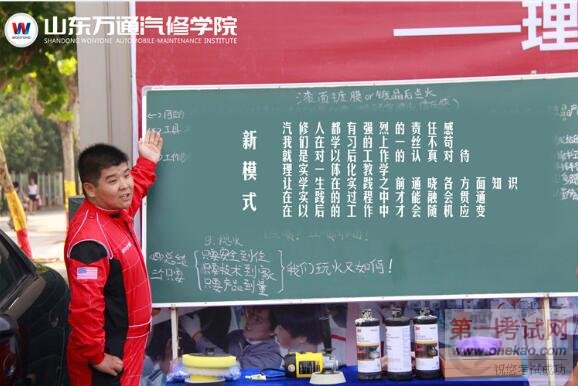 山东万通汽修学院
SHANDONG WONTONE AUTOMOBILE-MAINTENANCE INSTITUTE
WONTONE
一理
漆面镀膜or镀晶后点火
新模式
汽修人都有强烈的责任感
我们在学习的上一丝不苟
就是对以后工作的认真对待
理实一体化教学
让学生在实践之前通晓各方面知识
在实践的过程中才能融会贯通
在以后的工作中才会随机应变
工具
总结
只要安全到位
只要技术到家
只要产品到量
我们玩火又如何！
第一考试网
www.onekao.com
祝您考试成功